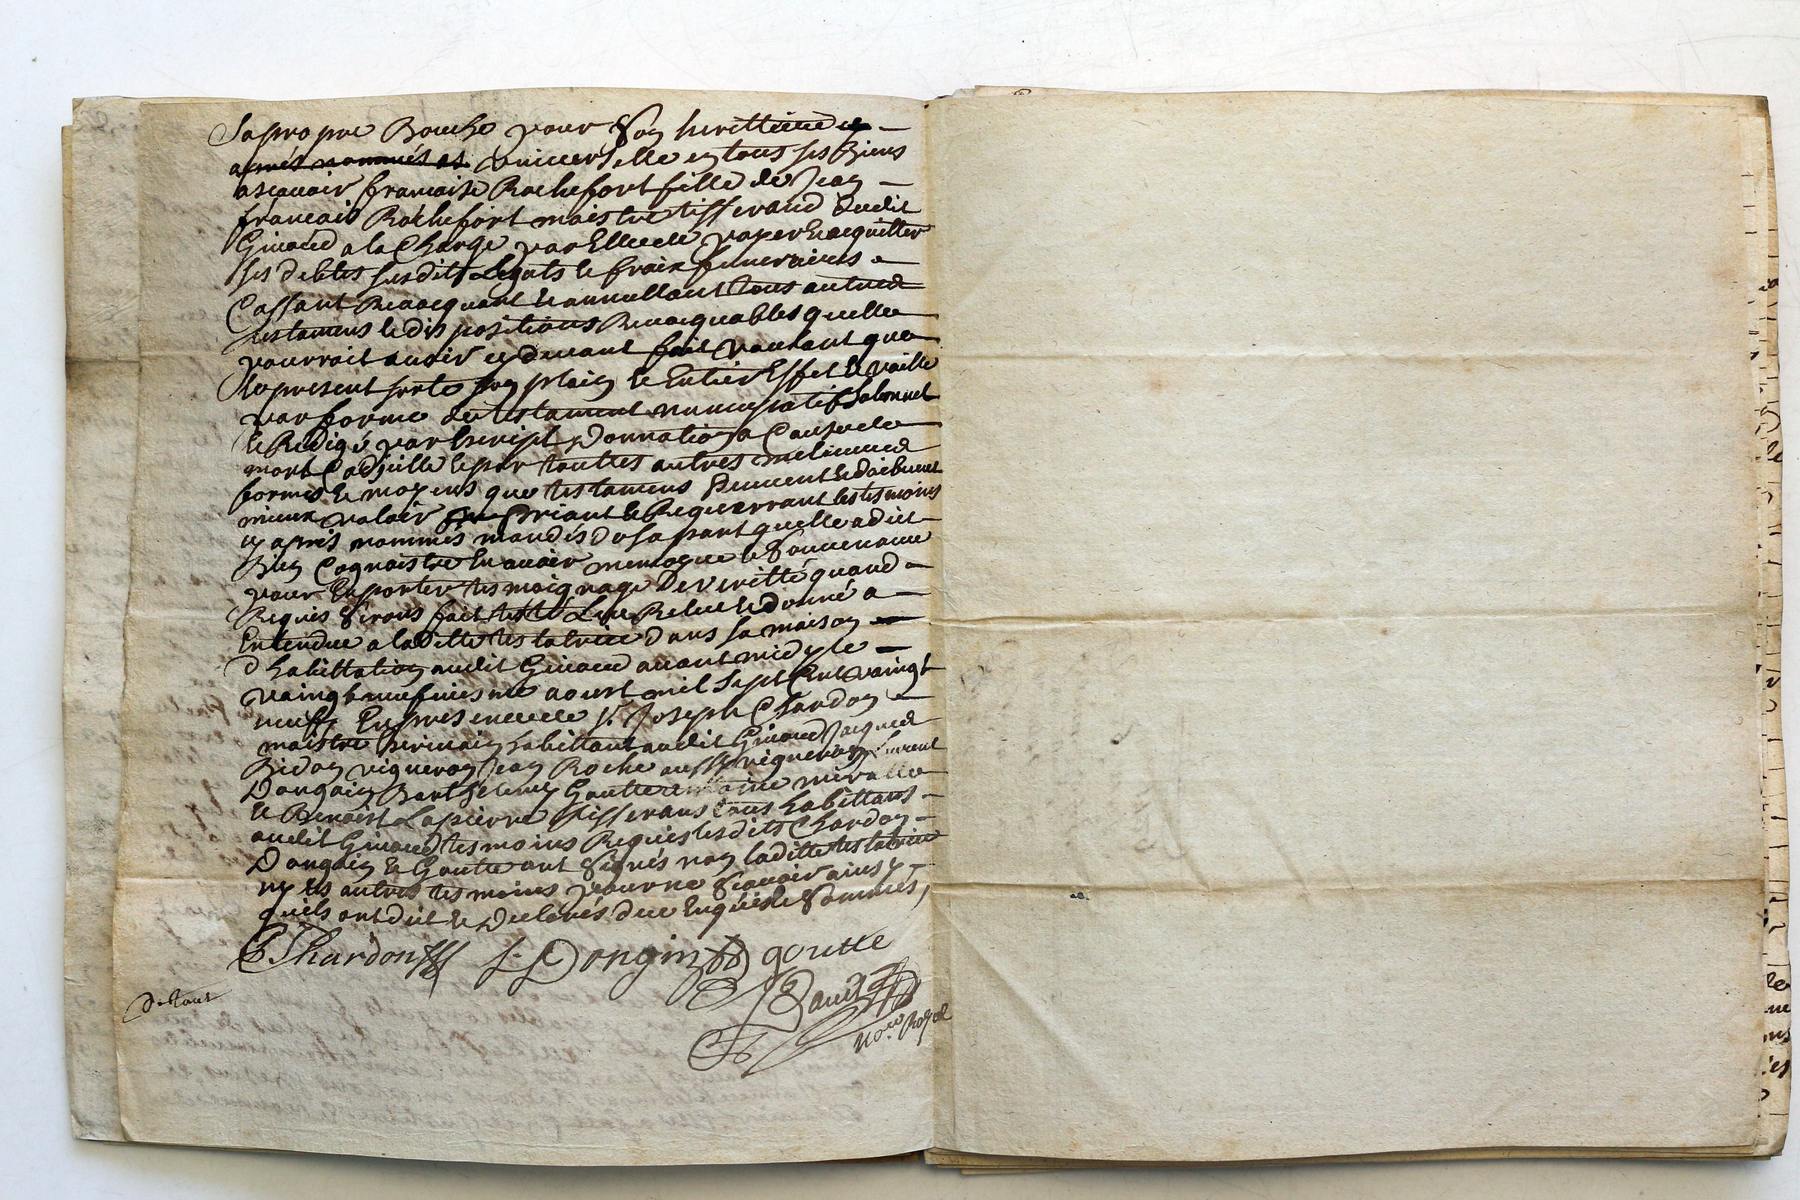 Sa propre Bouche pour Son herittiere
apres nommés et Vniverselle en tous ses Biens
ascauoir francoise Rochefort fille de Jean
francois Rochefort maistre tisserand dudit
Giuord a la Charge par Elle de payer Et acquitter
ses debtes susdits Legats Et fraix funeraires
Cassant Reuocquant Et annullant tous autres
testamens Et dispositions Reuocquables quelle
pourroit auoir cy deuant fait Voulant que
le present sorte son plain Et Entier Effet Et vaille
par forme de testament nuncupatif Solennel
Et Redigé par Escript, Donnation a Cause de
mort Codicille Et par touttes autres meilleures
formes Et moyens que testamens Peuuent Et doibuent
mieux valoir Priant Et Requerrant les tesmoins
cy apres nommés mandés de sa part quelle a dit
Bien Cognoistre En auoir memoire Et Souuenance
pour En porter tesmoignage De veritté quand
Requis Seront fait Leu Releu Et donné a
Entendre a laditte testatrice dans sa maison
d'habittation audit Giuord auant midy le
vaingt neufuiesme aoust mil Sept Cent vaingt
neuff En presence de Sr. Joseph Chardon
maistre habittant audit Giuord Jacques
Bidon vigneron Jean Roche aussy vigneron Laurent
Dongain Barthelemy Goutte
Et Benoist Lapierre tisserans tous habittans
audit Giuord tesmoins Requis lesdits Chardon
Dongain Et Goutte ont Signés non laditte testatrice
ny les autres tesmoins pour ne Scauoir ainsy
quils ont dit Et Declarés de ce Enquis Et Sommés,
Chardon L. Dongin goutte
no.re Royal